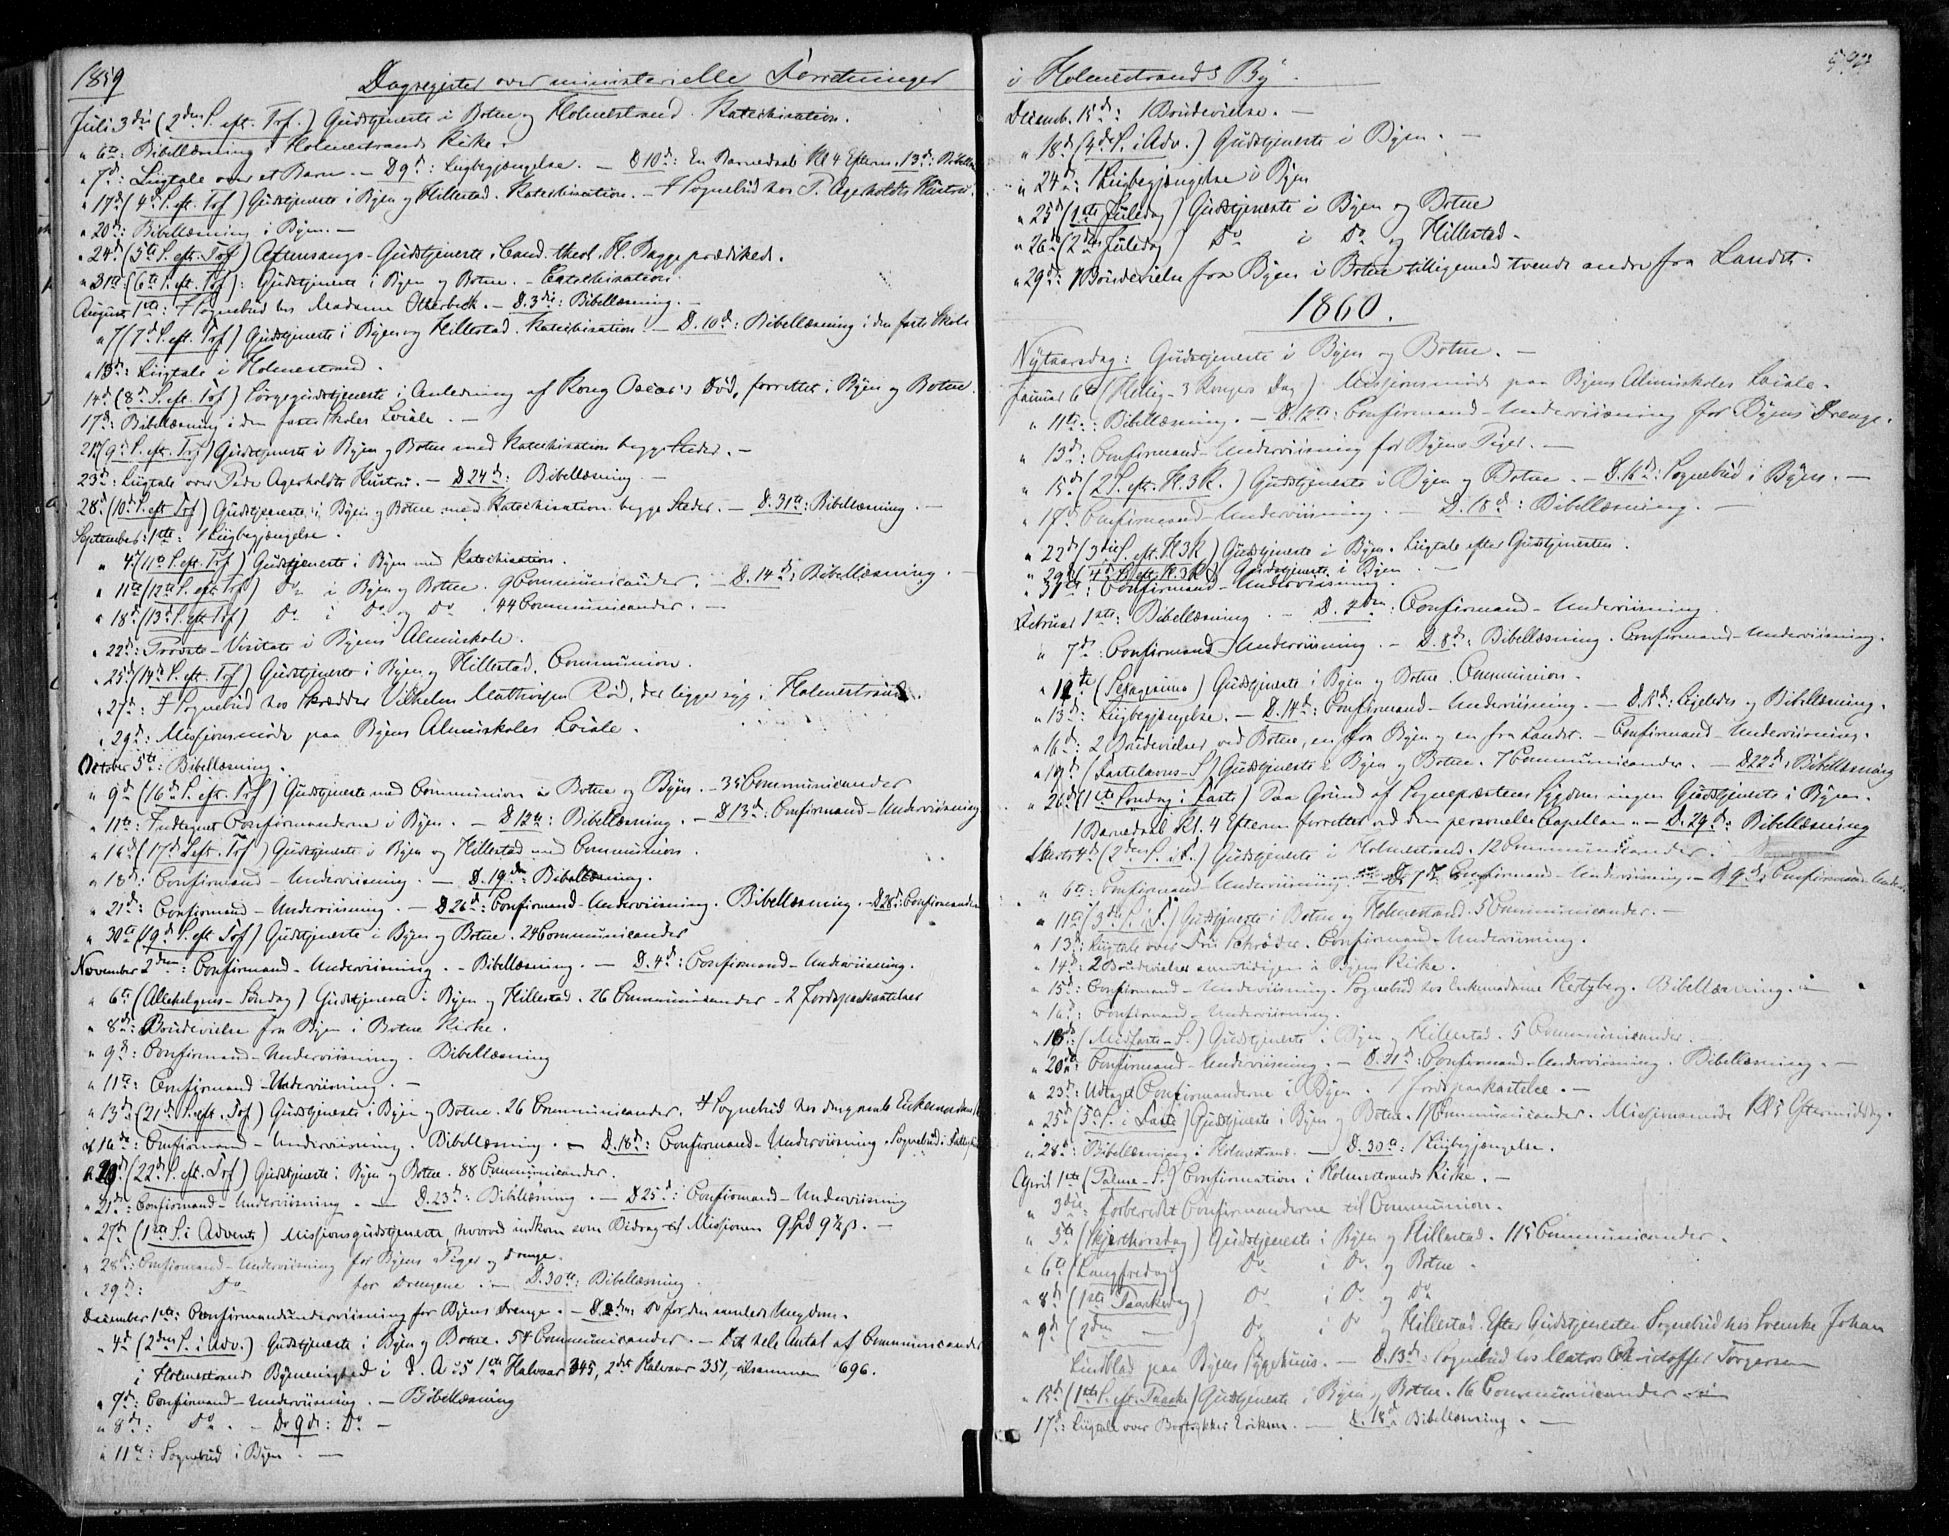 1859 Dagregister over ministerielle Forretninger
Juli 3die (2den S. eft. Tref.) Gudstjeneste i Botne og Holmestrand. Katechisation.
" 6te: Bibellæsning i Holmestrands Kirke.
" 7d: Liigtale over et Barn. – D 9d: Liigbegjængelse. – D 10d: En Barnedaab Kl 4 Efterm. 13d: Bibellæs
" 17d (4d S. eft. Tref) Gudstjeneste i Byen og Hillestad. Katechisation. – Sognebud hos P. Agerholdts Hustru.
" 20d: Bibellæsning i Byen. –
" 24d (5te S. eft. Tref) Aftensangs-Gudstjeneste, Cand. theol. H. Bagge prædikede.
" 31te (6te S. eft. Tref): Gudstjeneste i Byen og Botne. – Catechisation.
August 1te: Sognebud hos Madame Otterbeck. – D. 3die: Bibellæsning. –
" 7 (7d S. eft. Tref) Gudstjeneste i Byen og Hillestad. Katechisation. – D. 10d: Bibellæsning i den faste Skole
" 13d: Liigtale i Holmestrand.
14d (8d S. eft. Tref) Sørgegudstjeneste i Anledning af Kong Oscar's Død, forrettet i Byen og Botne.
17d: Bibellæsning i den faste Skoles Locale. –
21d (9d S. eft. Tref) Gudstjeneste i Byen og Botne med Katechisation begge Steder. –
23d: Liigtale over Peder Agerholdts Hustru. – D 24d: Bibellæsning. –
28d (10d S. eft Tref) Gudstjeneste i Byen og Botne med Katechisation begge Steder. – D. 31te: Bibellæsning. –
September 1te: 1 Liigbegjængelse.
" 4d (11te S. eft. Tref) Gudstjeneste i Byen med Katechisation.
" 11te (12te S. eft. Tref) Do i Byen og Botne. 9 Communicander. – D. 14d: Bibellæsning. –
" 18d (13d S. eft Tref) Do i Do og Do. 44 Communicander. –
" 22d: Provste-Visitats i Byens Almuskole.
" 25d (14d S. eft. Tref) Gudstjeneste i Byen og Hillestad. Communion.
" 27d: Sognebud hos Skrædder Vilhelm Mathisen Rød, der ligger syg i Holmestrand.
" 29d: Missionsmøde paa Byens Almuskoles Locale.
October 5te: Bibellæsning.
" 9d (16d S. eft. Tref) Gudstjeneste med Communion i Botne og Byen. – 35 Communicander
" 11te: Indtegnet Confirmanderne i Byen. – D 12te: Bibellæsning. – D 13d: Confirmand-Underviisning
" 16d (17d S. eft. Tref) Gudstjeneste i Byen og Hillestad med Communion.
" 18d: Confirmand-Underviisning. – D. 19de Bibellæsning.
" 21d: Confirmand-Underviisning. – D 26d: Confirmand-Underviisning. Bibellæsning. – D 28d: Confirmanden
" 30te (19d S. eft. Tref) Gudstjeneste i Byen og Botne. 24 Communicander
November 2den: Confirmand-Underviisning. – Bibellæsning. – D. 4d: Confirmand-Underviisning.
" 6te (Allehelgens-Søndag) Gudstjeneste i Byen og Hillestad. 26 Communicander – 2 Jordspaakastelser
" 8d: Brudevielse fra Byen i Botne Kirke.
" 9d: Confirmand-Underviisning. Bibellæsning
" 11te: Confirmand-Underviisning. –
" 13d (21d S. eft. Tref) Gudstjeneste i Byen og Botne. 26 Communicander. Sognebud hos Enkemadame
" 16d: Confirmand-Underviisning. Bibellæsning. – D. 18d: Confirmand-Underviisning. Sognebud i
" 20d (22d S. eft. Tref) Gudstjeneste i Byen og Botne. 88 Communicander.
" 21d: Confirmand-Underviisning. – D. 23d: Bibellæsning. – D 25d: Confirmand-Underviisning
" 27d (1ste S. i Advent) Missionsgudstjeneste, hvorved indkom som Bidrag til Missionen 9 Spd 9½ ß. –
" 28d: Confirmand-Underviisning for Byens Piger og Drenge.
" 29d: Do for Drengene. – D. 30te: Bibellæsning.
December 1ste: Confirmandunderviisning for Byens Drenge. – D. 2den Do for den samlede Ungdom.
" 4d (2den S. i Adv.) Gudstjeneste i Byen og Botne. 54 Communicander. – Det hele Antal af Communicander
i Holmestrands Bymenighed i d. A. 1ste Halvaar 345, 2det Halvaar 351, tilsammen 696.
" 7d: Confirmand-Underviisning. – Bibellæsning
" 8d: Do. – D. 9de: Do –
" 11te: Sognebud i Byen. –
i Holmestrands By.
Decemb. 15d: 1 Brudevielse. –
" 18d (4d S. i Adv.) Gudstjeneste i Byen. –
" 24d: 1 Liigbegjængelse i Byen
" 25d (1ste Juledag) Gudstjeneste i Byen og Botne
" 26d (2den Juledag) Do i Do og Hillestad –
" 29d: 1 Brudevielse fra Byen i Botne tilligemed tvende andre fra Landet.
1860.
Nytaarsdag: Gudstjeneste i Byen og Botne. –
Januar 6te (Hellig-3 Kongers Dag) Missionsmøde paa Byens Almuskoles Locale.
" 11te: Bibellæsning. – D. 12te: Confirmand-Underviisning for Byens Drenge.
" 13d: Confirmand-Underviisning for Byens Piger. –
" 15d (2 S. eft. H. 3 K.) Gudstjeneste i Byen og Botne. – D. 16d: Sognebud i Byen. –
" 17d Confirmand-Underviisning. – D. 18d: Bibellæsning. –
" 22d (3die S. eft. H 3 K) Gudstjeneste i Byen. Liigtale efter Gudstjenesten.
" 29d (4d S. eft. H. 3 K) Gudstjeneste i Byen. –
" 31te: Confirmand-Underviisning.
Februar 1ste: Bibellæsning. – D. 2den: Confirmand-Underviisning.
" 7d: Confirmand-Underviisning. – D. 8d: Bibellæsning. Confirmand-Underviisning.
" 12te (Sexagesima) Gudstjeneste i Byen og Botne. Communion. –
" 13d: Liigbegjængelse. – D. 14d: Confirmand-Underviisning. – D. 15d: Ligeledes og Bibellæsning.
" 16d: 2 Brudevielser ved Botne, en fra Byen og en fra Landet. – Confirmand-Underviisning.
" 19d (Fastelavns-S.) Gudstjeneste i Byen og Botne. 7 Communicander. – D 22d: Bibellæsning
" 26d (1ste Søndag i Faste) Paa Grund af Sognepræstens Sygdom ingen Gudstjeneste i Byen.
1 Barnedaab Kl. 4 Efterm. forrettet ved den personelle Capellan. – D. 29d: Bibellæsning
Marts 4d (2den S. i F.) Gudstjeneste i Holmestrand. 12 Communicander.
" 6te: Confirmand-Underviisning. – D. 7d: Confirmand-Underviisning. – D 9d: Confirmand-Underv
" 11te (3die S. i F.) Gudstjeneste i Botne og Holmestrand. 5 Communicander. –
" 13d: Liigtale over Fru Schrøder. Confirmand-Underviisning.
" 14d: 2 Brudevielser samtidigen i Byens Kirke.
" 15d: Confirmand-Underviisning. Sognebud hos Enkemadame Hertzberg. Bibellæsning. –
" 16d: Confirmand-Underviisning.
" 18d: (Midfaste-S.) Gudstjeneste i Byen og Hillestad. 5 Communicander.
" 20de: Confirmand-Underviisning. – D. 21d: Confirmand-Underviisning. Bibellæsning. –
" 23d: Udtaget Confirmanderne i Byen. 1 Jordspaakastelse. –
" 25d (5te S. i Faste) Gudstjeneste i Byen og Botne. 11 Communicander. Missionsmøde Kl 5 Eftermiddag.
" 28d: Bibellæsning i Holmestrand. – D. 30te: 1 Liigbegjængelse.
April 1ste (Palme-S.) Confirmation i Holmestrands Kirke. –
" 3die: forberedet Confirmanderne til Communion.
" 5te (Skjærthorsdag) Gudstjeneste i Byen og Hillestad. 115 Communicander.
" 6te (Langfredag) Do i Do og Botne.
" 8d (1ste Paaskedag) Do i Do og Do
" 9d (2den –) Do i Do og Hillestad. Efter Gudstjenesten Sognebud hos Svenske Johan
Lindblad paa Byens Sygehuus. – D. 13d: Sognebud hos Matros Christoffer Torgersen
" 15d (1ste S. eft. Paaske) Gudstjeneste i Byen og Botne. 16 Communicander –
17d: Liigtale over Bogtrykker Eriksen. – D. 18d Bibellæsning. –